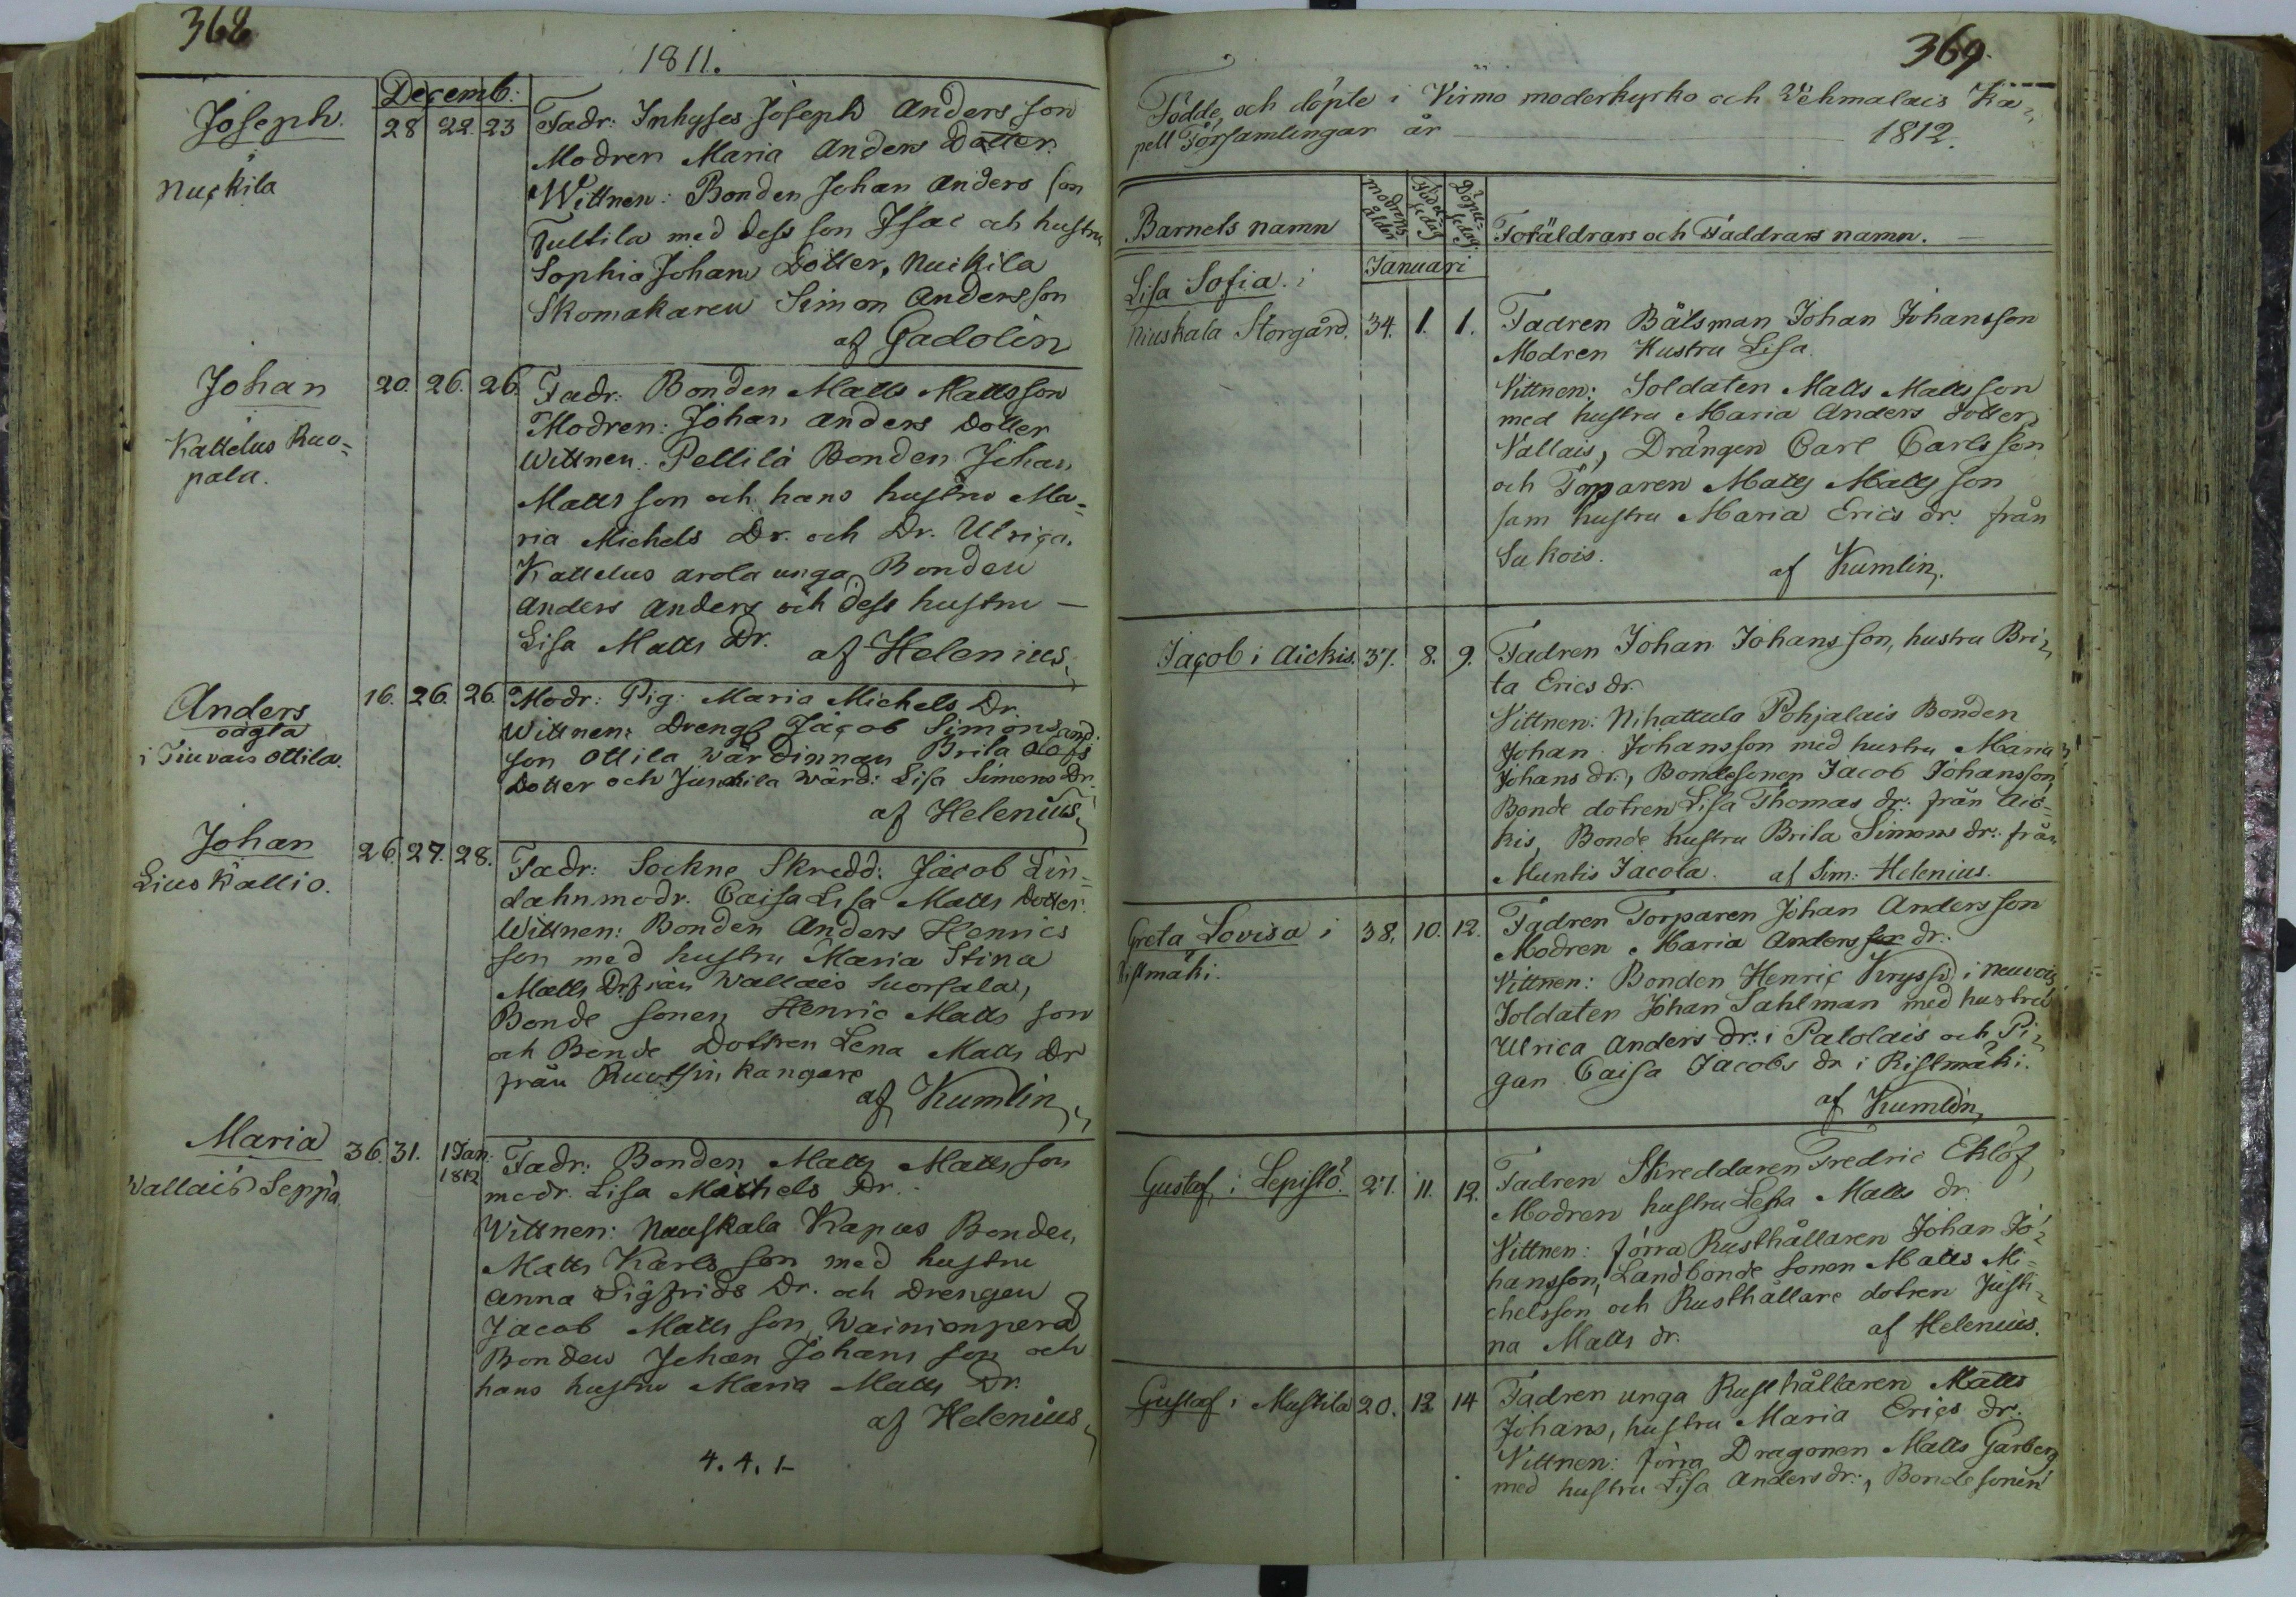 368
1811.
Decemb:
Joseph. 28 22. 23 Fadr: Inhyses Joseph Anders son
Modren Maria Anders Dotter.
Nuckila Wittnen: Bonden Johan Anders son
Tultila med dess son Isac och hustru
Sophia Johans Dotter, Nuckila
Skomakaren Simon Andersson
af Gadolin
Johan 20. 26. 26. Fadr: Bonden Matts Mattsson
Kattelus Ruo= Modren: Johan Anders Dotter
pala. Wittnen: Pellilä Bonden Johan
Matts son och hans hustru Ma=
ria Michels Dr. och Dr. Ulrica.
Kattelus arola unga Bonden
Anders Anders och dess hustru —
Lisa Matts Dr. af Helenius
Anders 16. 26. 26. Modr: Pig. Maria Michels Dr.
oägta Wittnen: Dreng Jacob Simons
i Tiuvais Ottila. son Ottila Wärdinnan Brita Olofs
Dotter och Junnila Wärd: Lisa Simons Dr.
af Helenius
Johan 26. 27. 28. Fadr: Sockne Skredd: Jacob Lin=
Lius Kallio. dahn modr. Caisa Lisa Matts Dotter.
Wittnen: Bonden Anders Henrics
son med hustru Maria Stina
Matts Dr från Wallais Suorsala,
Bonde sonen Henric Matts son
och Bonde Dottren Lena Matts Dr
från Ruotsin kangare
af Kumlin
Maria 36. 31. 1 Jan. Fadr: Bonden Matts Matts son
1812
Wallais Seppä. modr. Lisa Michels Dr.
Wittnen: Nauskala Kapus Bonden
Matts Karls son med hustru
Anna Sigfrids Dr. och Drengen
Jacob Matts son, Wainionperä
Bonden Johan Johans son och
hans hustru Maria Matts Dr.
af Helenius
4. 4. 1-
369.
Födde, och döpte i Virmo moderkyrko och Vehmalais Ka=
pell Församlingar år 1812.
Barnets namn modrens ålder Födelsedag Döpelsedag. Foräldrars och Faddrars namn.
Januari
Lisa Sofia. i
Niuskala Storgård. 34. 1. 1. Fadren Båtsman Johan Johansson
Modren Hustru Lisa.
Vittnen: Soldaten Matts Matts son
med hustru Maria Anders dotter
Vallais, Drängen Carl Carls son
och Torparen Matts Matts son
sam hustru Maria Erics dr. från
Sukois. af Kumlin.
Jacob i Aickis. 37. 8. 9. Fadren Johan Johans son, hustru Bri=
ta Erics dr.
Vittnen: Nihattula Pohjalais Bonden
Johan Johansson med hustru Maria
Johans dr., Bondesonen Jacob Johansson,
Bonde dotren Lisa Thomas dr: från Aic=
kis, Bonde hustru Brita Simons dr: från
Muntis Jacola. af Sim: Helenius.
Greta Lovisa i 38. 10. 12. Fadren Torparen Johan Andersson
Ristmäki. Modren Maria Anders son dr:
Vittnen: Bonden Henric Kryssi i Neuvois,
Soldaten Johan Sahlman med hustru
Ulrica Anders dr: i Patolais och Pi=
gan Caisa Jacobs dr i Ristmäki.
af Kumlin
Gustaf, i Lepistö. 27. 11. 12. Fadren Skreddaren Fredric Eklöf,
Modren hustru Lisa Matts dr.
Vittnen: förra Rusthållaren Johan Jo=
hansson, Landbonde sonen Matts Mi=
chelsson och Rusthållare dotren Justi=
na Matts dr. af Helenius.
Gustaf i Mustila 20. 12 14 Fadren unga Rusthållaren Matts
Johans, hustru Maria Erics dr.
Vittnen: förra Dragonen Matts Garberg
med hustru Lisa Anders dr:, Bonde sonen